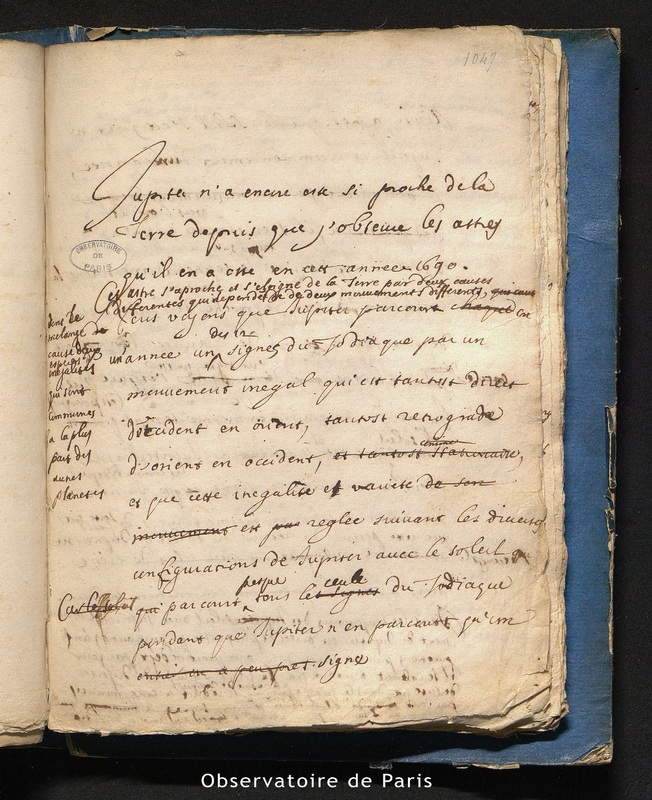 1047
Jupiter n'a encore esté si proche de la
Terre depuis que j'observe les astres
OBSERVATOIRE
DE
PARIS
qu'il en a esté en cette année 1690.
Cet astre s'aproche et s'eloigne de la Terre par deux causes
differentes qui dependent de deux mouvements differents,
nous voyons que Jupiter parcourt chaque
année un signe du Zodiaque par un
mouvement inegal qui est tantost direct
d'occident en orient, tantost retrograde
d'orient en occident, et tantost stationaire,
et que cette inegalité et varieté de son
mouvement est reglée suivant les diverses
configurations de Jupiter avec le soleil
qui parcourt presque tous les signes du Zodiaque
pendant que Jupiter n'en parcourt qu'un
signe
melange de
cause deux
especes
inegalités
qui sont
communes
a la plus
part des
autres
planetes
Observatoire de Paris